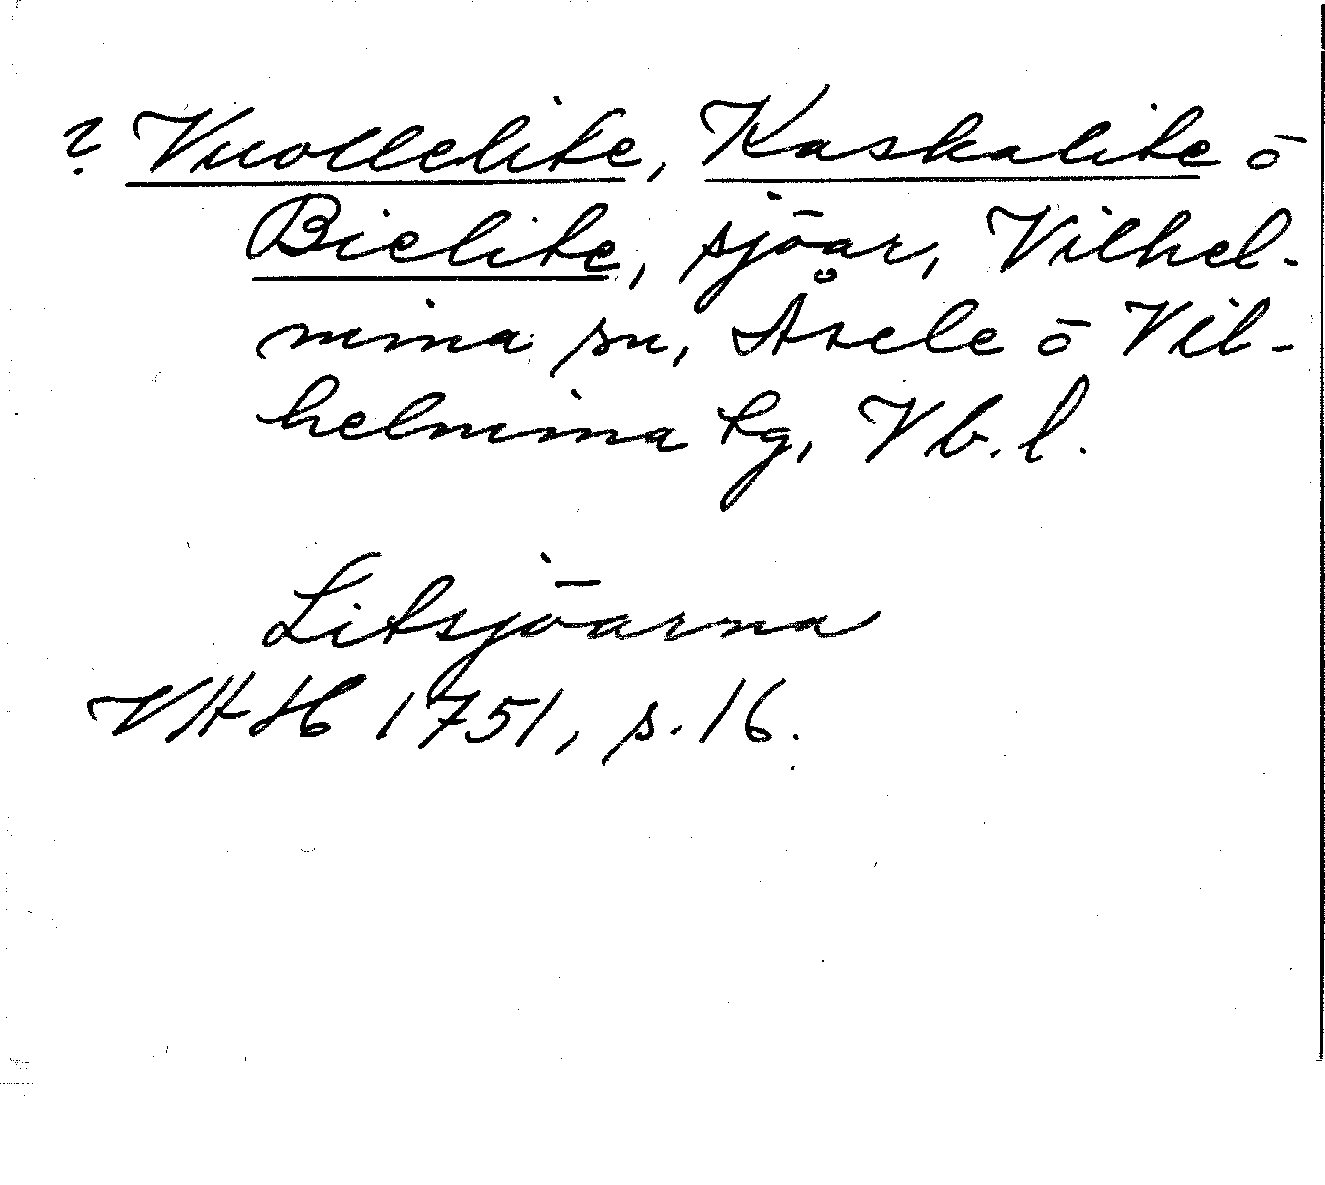 ? Vuollelite, Kaskalite ō
Bielite, sjöar, Vilhel-
mina sn, Åsele ō Vil-
helmina tg, Vb. l.
Litsjöarna
VHH 1751, s. 16.